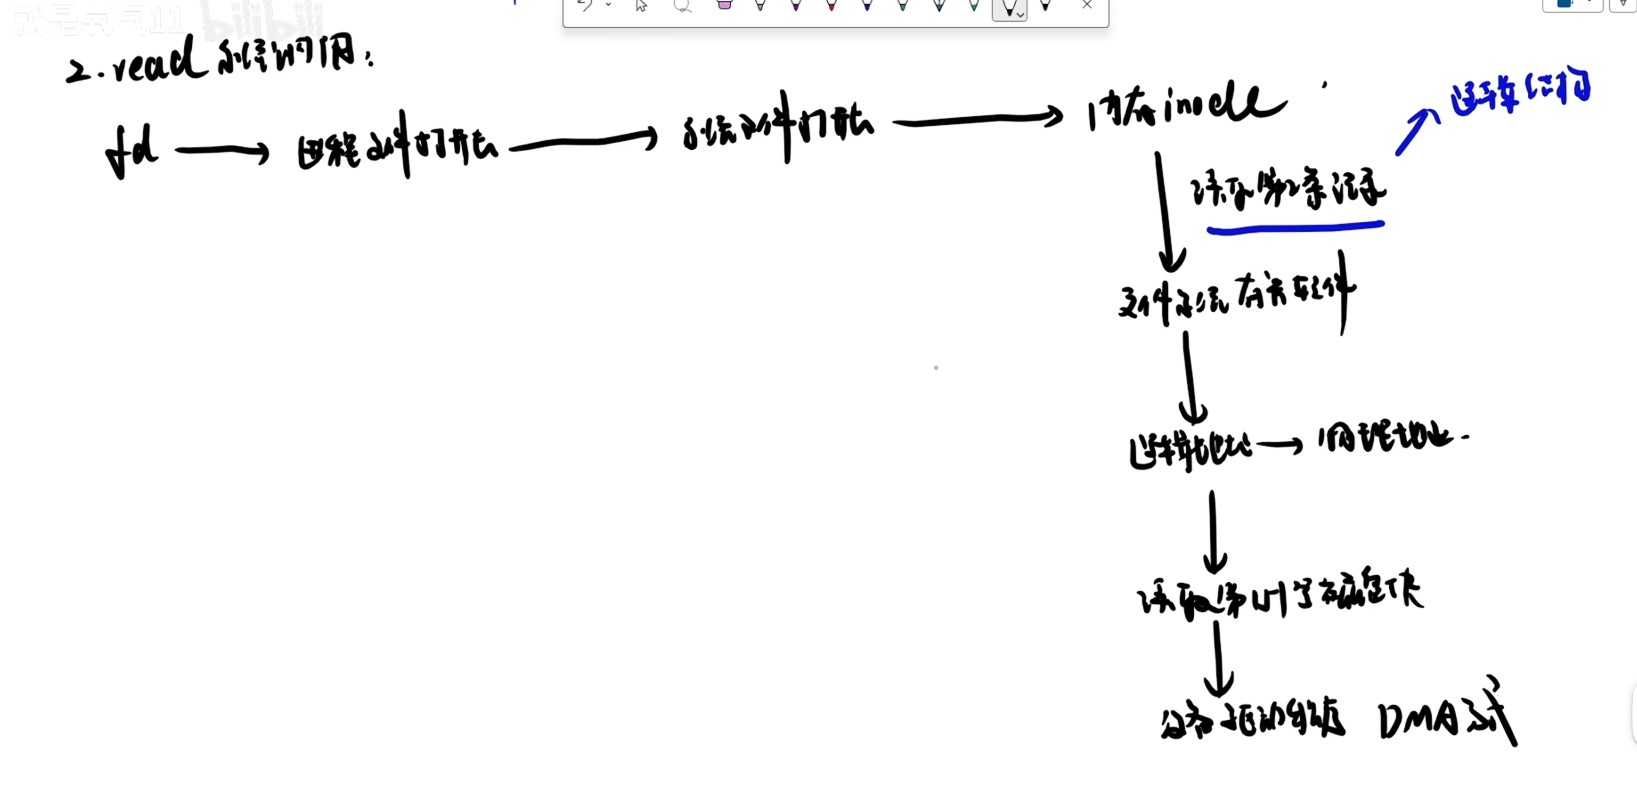 就是氧气11 bilibili
2. read 系统调用：
fd → 进程文件打开表 → 系统文件打开表 → 内存inode
逻辑结构
读取第2条记录
文件系统有关软件
逻辑地址 → 物理地址
读取第 号磁盘块
设备驱动 DMA方式